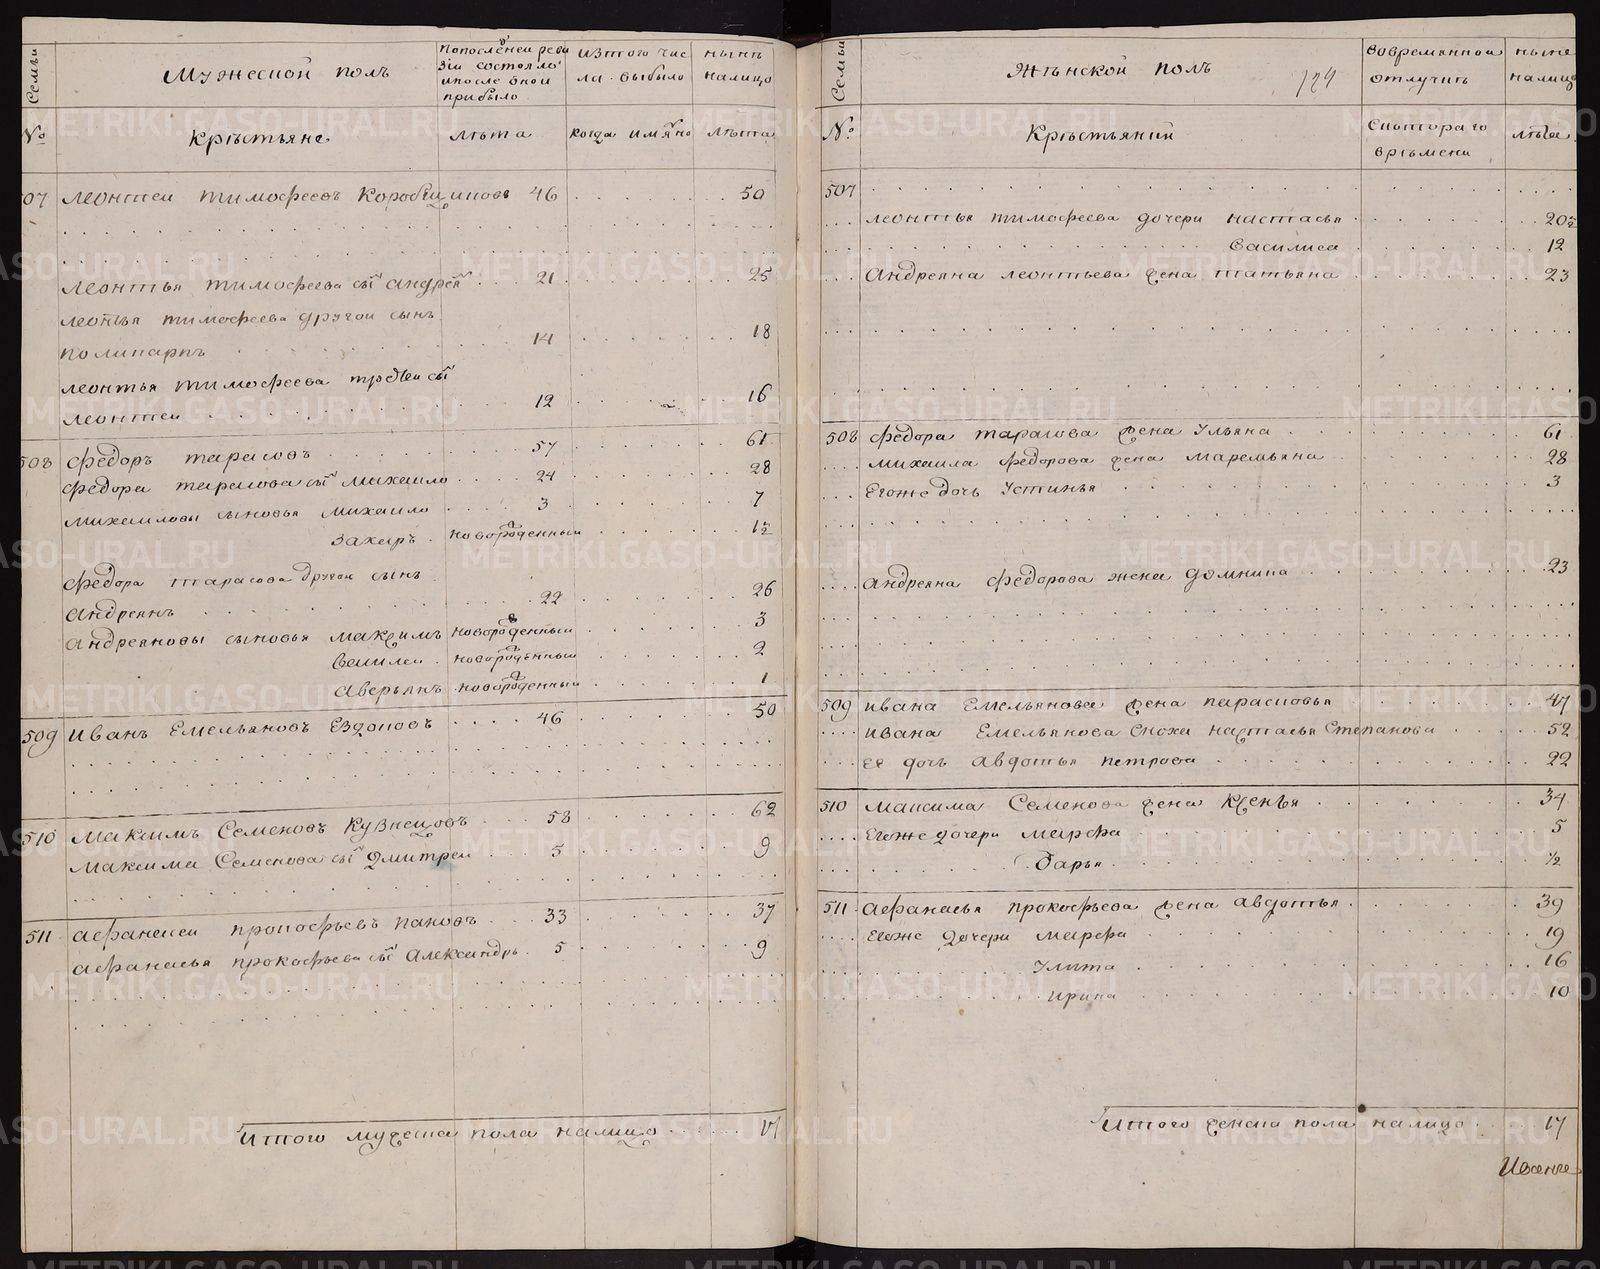 Семьи
Мужеской полъ
Попоследней реви
зіи состояло
ипосле оной
прибыло
изтого чис
ла выбыло
нынъ
налицо
№
Кръстьяне
лъта
когда имянно
лъта
507 леонтеи тимофеевъ Коробещиковъ 46 50
леонтья тимофеева сы андреи 21 25
леонтья тимофеева другои сынъ
поликарпъ 14 18
леонтья тимофеева третеи сы
леонтеи 12 16
508 федоръ тарасовъ 57 61
федора тарасова сы михаило 24 28
михаиловы сыновья михаило 3 7
захаръ новорожденныи 1½
федора тарасова другои сынъ
андреянъ 22 26
андреяновы сыновья максимъ новорожденныи 3
василеи новорожденныи 2
аверьянъ новорожденныи 1
509 иванъ Емельяновъ Ездоковъ 46 50
510 максимъ Семеновъ Кузнецовъ 58 62
максима Семенова сы Дмитреи 5 9
511 афанасеи прокофьевъ пановъ 33 37
афанасья прокофьева сы Александръ 5 9
Итого мужеска пола налицо 17
Семьи
Жънской полъ
124
вовремянной
отлучкъ
ныне
налицо
№
Кръстьяник
Скотораго
връмени
лъта
507
леонтья тимофеева дочери настасья 20½
василиса 12
андреяна леонтьева жена татьяна 23
508 федора тарасова жена Ульяна 61
михаила федорова жена маремьяна 28
Егоже дочь Устинья 3
андреяна федорова жена домнина 23
509 ивана Емельянова жена парасковья 47
ивана Емельянова сноха настасья Степанова 52
ее дочь авдотья петрова 22
510 максима Семенова жена ксенья 34
Егоже дочери марфа 5
дарья ½
511 афанасья прокофьева жена авдотья 39
Егоже дочери марфа 19
Улита 16
ирина 10
Итого женска пола налицо 17
METRIKI.GASO-URAL.RU